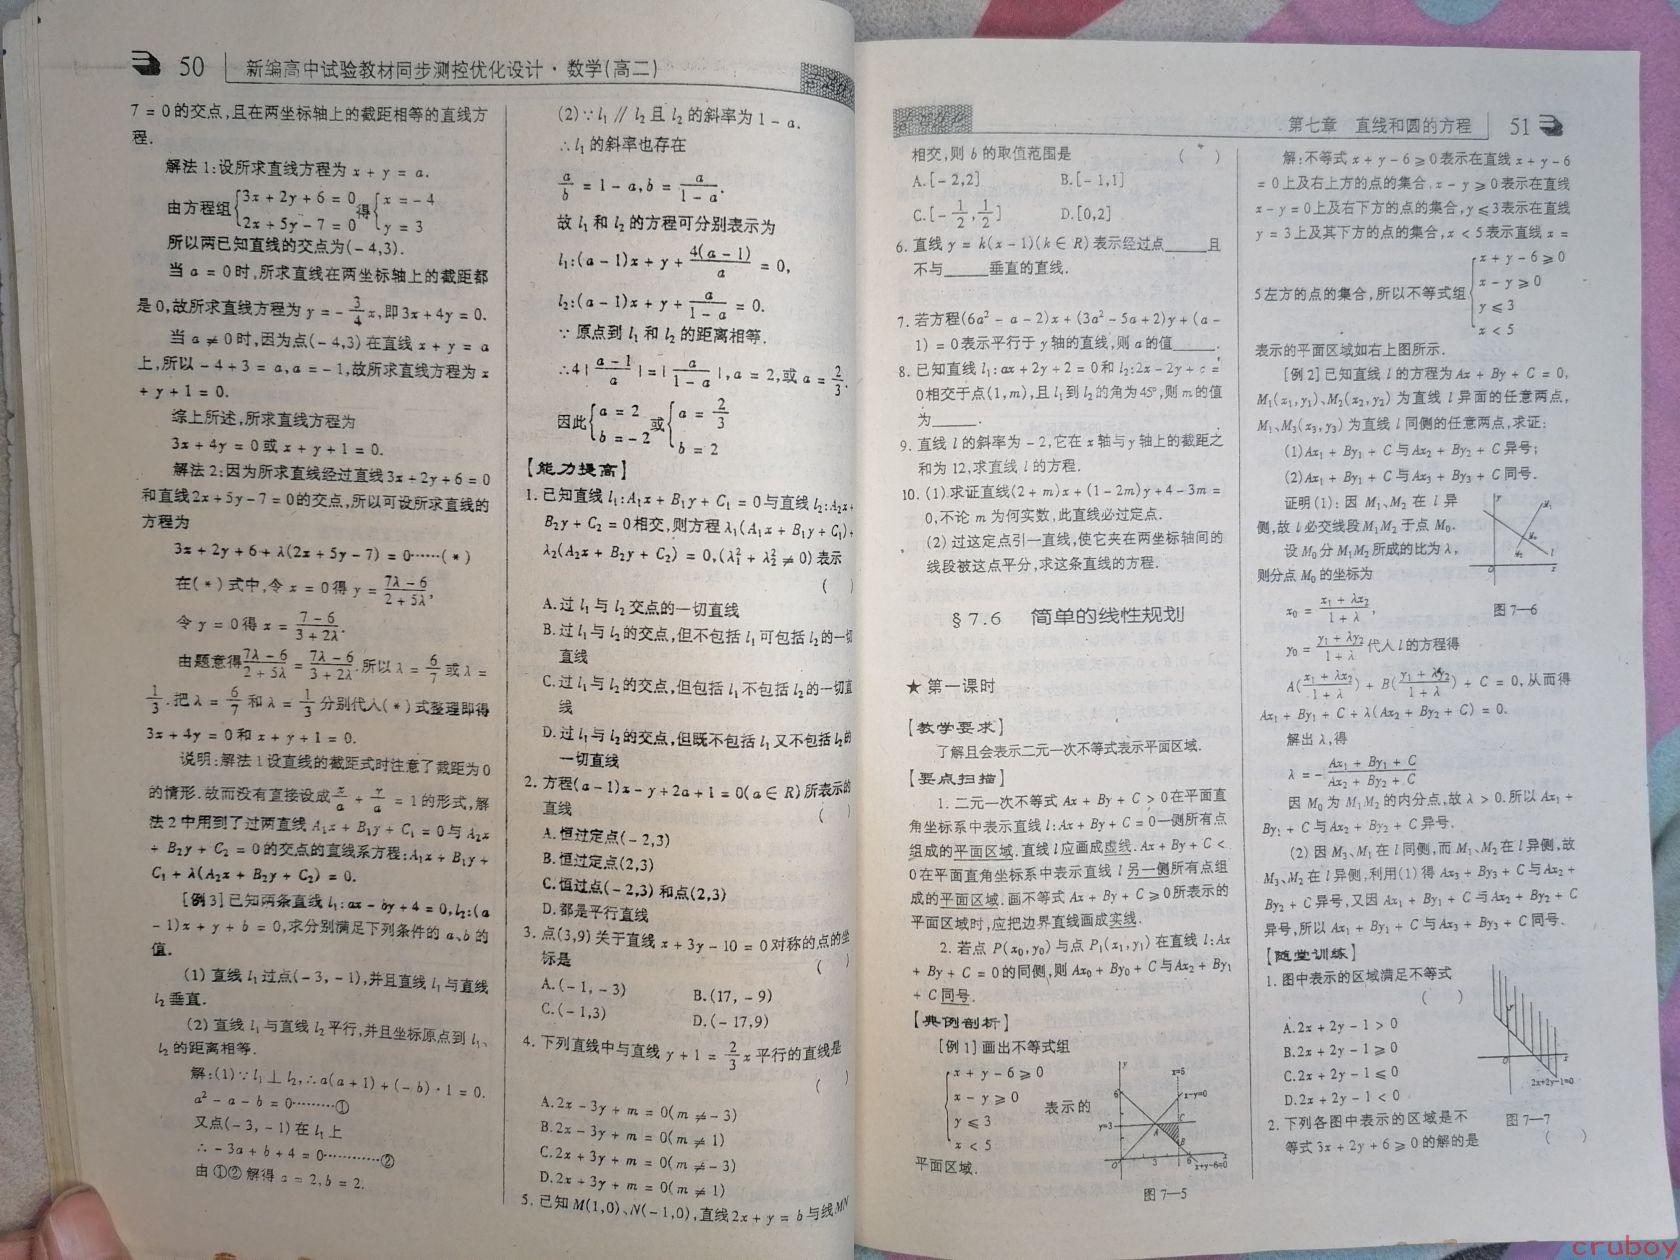 50 新编高中试验教材同步测控优化设计·数学(高二)
7 = 0的交点,且在两坐标轴上的截距相等的直线方
程.
解法1:设所求直线方程为 x + y = a.
由方程组{3x + 2y + 6 = 0 2x + 5y - 7 = 0 得{x = -4 y = 3
所以两已知直线的交点为(-4,3).
当 a = 0时,所求直线在两坐标轴上的截距都
是0,故所求直线方程为 y = -3/4x,即3x + 4y = 0.
当 a ≠ 0时,因为点(-4,3)在直线 x + y = a
上,所以 -4 + 3 = a, a = -1,故所求直线方程为 x
+ y + 1 = 0.
综上所述,所求直线方程为
3x + 4y = 0或 x + y + 1 = 0.
解法2:因为所求直线经过直线3x + 2y + 6 = 0
和直线2x + 5y - 7 = 0的交点,所以可设所求直线的
方程为
3x + 2y + 6 + λ(2x + 5y - 7) = 0……(*)
在(*)式中,令 x = 0得 y = (7λ - 6)/(2 + 5λ),
令 y = 0得 x = (7 - 6)/(3 + 2λ).
由题意得(7λ - 6)/(2 + 5λ) = (7λ - 6)/(3 + 2λ).所以 λ = 6/7 或 λ =
1/3.把 λ = 6/7 和 λ = 1/3 分别代入(*)式整理即得
3x + 4y = 0 和 x + y + 1 = 0.
说明:解法1设直线的截距式时注意了截距为0
的情形.故而没有直接设成 x/a + y/a = 1的形式,解
法2中用到了过两直线 A₁x + B₁y + C₁ = 0与 A₂x
+ B₂y + C₂ = 0的交点的直线系方程:A₁x + B₁y +
C₁ + λ(A₂x + B₂y + C₂) = 0.
[例3]已知两条直线 l₁:ax - by + 4 = 0,l₂:(a
- 1)x + y + b = 0,求分别满足下列条件的 a、b 的
值.
(1) 直线 l₁ 过点(-3, -1),并且直线 l₁ 与直线
l₂ 垂直.
(2) 直线 l₁ 与直线 l₂ 平行,并且坐标原点到 l₁、
l₂ 的距离相等.
解:(1)∵l₁⊥l₂,∴a(a + 1) + (-b)·1 = 0.
a² - a - b = 0………①
又点(-3, -1)在 l₁ 上
∴ -3a + b + 4 = 0…………②
由①②解得 a = 2, b = 2.
(2)∵l₁∥l₂ 且 l₂ 的斜率为 1 - a.
∴l₁ 的斜率也存在
a/b = 1 - a, b = a/(1 - a).
故 l₁ 和 l₂ 的方程可分别表示为
l₁:(a - 1)x + y + 4(a - 1)/a = 0,
l₂:(a - 1)x + y + a/(1 - a) = 0.
∵原点到 l₁ 和 l₂ 的距离相等.
∴4|(a - 1)/a| = |a/(1 - a)|, a = 2,或 a = 2/3.
因此{a = 2 b = -2 或{a = 2/3 b = 2
【能力提高】
1. 已知直线 l₁:A₁x + B₁y + C₁ = 0与直线 l₂:A₂x+
B₂y + C₂ = 0相交,则方程 λ₁(A₁x + B₁y + C₁)+
λ₂(A₂x + B₂y + C₂) = 0,(λ₁² + λ₂² ≠ 0)表示
( )
A. 过 l₁ 与 l₂ 交点的一切直线
B. 过 l₁ 与 l₂ 的交点,但不包括 l₁ 可包括 l₂ 的一切
直线
C. 过 l₁ 与 l₂ 的交点,但包括 l₁ 不包括 l₂ 的一切直
线
D. 过 l₁ 与 l₂ 的交点,但既不包括 l₁ 又不包括 l₂ 的
一切直线
2. 方程(a - 1)x - y + 2a + 1 = 0(a ∈ R)所表示的
直线 ( )
A. 恒过定点(-2,3)
B. 恒过定点(2,3)
C. 恒过点(-2,3)和点(2,3)
D. 都是平行直线
3. 点(3,9)关于直线 x + 3y - 10 = 0对称的点的坐
标是 ( )
A. (-1, -3) B. (17, -9)
C. (-1,3) D. (-17,9)
4. 下列直线中与直线 y + 1 = 2/3x 平行的直线是
( )
A. 2x - 3y + m = 0(m ≠ -3)
B. 2x - 3y + m = 0(m ≠ 1)
C. 2x + 3y + m = 0(m ≠ -3)
D. 2x + 3y + m = 0(m ≠ 1)
5. 已知 M(1,0)、N(-1,0),直线2x + y = b 与线MN
第七章 直线和圆的方程 51
相交,则 b 的取值范围是 ( )
A. [-2,2] B. [-1,1]
C. [-1/2,1/2] D. [0,2]
6. 直线 y = k(x - 1)(k ∈ R)表示经过点____且
不与____垂直的直线.
7. 若方程(6a² - a - 2)x + (3a² - 5a + 2)y + (a -
1) = 0表示平行于 y 轴的直线,则 a 的值____.
8. 已知直线 l₁:ax + 2y + 2 = 0和 l₂:2x - 2y + c =
0相交于点(1,m),且 l₁ 到 l₂ 的角为45°,则 m 的值
为____.
9. 直线 l 的斜率为 -2,它在 x 轴与 y 轴上的截距之
和为12,求直线 l 的方程.
10. (1).求证直线(2 + m)x + (1 - 2m)y + 4 - 3m =
0,不论 m 为何实数,此直线必过定点.
(2) 过这定点引一直线,使它夹在两坐标轴间的
线段被这点平分,求这条直线的方程.
§7.6 简单的线性规划
★第一课时
【教学要求】
了解且会表示二元一次不等式表示平面区域.
【要点扫描】
1. 二元一次不等式 Ax + By + C > 0在平面直
角坐标系中表示直线 l:Ax + By + C = 0一侧所有点
组成的平面区域.直线 l 应画成虚线.Ax + By + C <
0在平面直角坐标系中表示直线 l 另一侧所有点组
成的平面区域.画不等式 Ax + By + C ≥ 0所表示的
平面区域时,应把边界直线画成实线.
2. 若点 P(x₀,y₀)与点 P₁(x₁,y₁)在直线 l:Ax
+ By + C = 0的同侧,则 Ax₀ + By₀ + C 与 Ax₂ + By₁
+ C 同号.
【典例剖析】
[例1]画出不等式组
{x + y - 6 ≥ 0
x - y ≥ 0
y ≤ 3
x < 5
表示的
平面区域.
y
x=5
6
x-y=0
y=3
C
A
B
0 3 6 x
x+y-6=0
图7—5
解:不等式 x + y - 6 ≥ 0表示在直线 x + y - 6
= 0上及右上方的点的集合, x - y ≥ 0表示在直线
x - y = 0上及右下方的点的集合, y ≤ 3表示在直线
y = 3上及其下方的点的集合, x < 5表示直线 x =
5左方的点的集合,所以不等式组{x + y - 6 ≥ 0
x - y ≥ 0
y ≤ 3
x < 5
表示的平面区域如右上图所示.
[例2]已知直线 l 的方程为 Ax + By + C = 0,
M₁(x₁,y₁)、M₂(x₂,y₂)为直线 l 异面的任意两点,
M₁、M₃(x₃,y₃)为直线 l 同侧的任意两点,求证:
(1)Ax₁ + By₁ + C 与 Ax₂ + By₂ + C 异号;
(2)Ax₁ + By₁ + C 与 Ax₃ + By₃ + C 同号.
证明(1):因 M₁、M₂ 在 l 异
侧,故 l 必交线段 M₁M₂ 于点 M₀.
设 M₀ 分 M₁M₂ 所成的比为 λ,
则分点 M₀ 的坐标为
x₀ = (x₁ + λx₂)/(1 + λ),
y₀ = (y₁ + λy₂)/(1 + λ) 代入 l 的方程得
y
M₁
M₀
M₂
l
0 x
图7—6
A((x₁ + λx₂)/(1 + λ)) + B((y₁ + λy₂)/(1 + λ)) + C = 0,从而得
Ax₁ + By₁ + C + λ(Ax₂ + By₂ + C) = 0.
解出 λ,得
λ = -(Ax₁ + By₁ + C)/(Ax₂ + By₂ + C)
因 M₀ 为 M₁M₂ 的内分点,故 λ > 0.所以 Ax₁ +
By₁ + C 与 Ax₂ + By₂ + C 异号.
(2) 因 M₃、M₁ 在 l 同侧,而 M₁、M₂ 在 l 异侧,故
M₃、M₂ 在 l 异侧,利用(1)得 Ax₃ + By₃ + C 与 Ax₂ +
By₂ + C 异号,又因 Ax₁ + By₁ + C 与 Ax₂ + By₂ + C
异号,所以 Ax₁ + By₁ + C 与 Ax₃ + By₃ + C 同号.
【随堂训练】
1. 图中表示的区域满足不等式
( )
A. 2x + 2y - 1 > 0
B. 2x + 2y - 1 ≥ 0
C. 2x + 2y - 1 ≤ 0
D. 2x + 2y - 1 < 0
y
0 x
2x+2y-1=0
图7—7
2. 下列各图中表示的区域是不
等式3x + 2y + 6 ≥ 0的解的是 ( )
cruboy